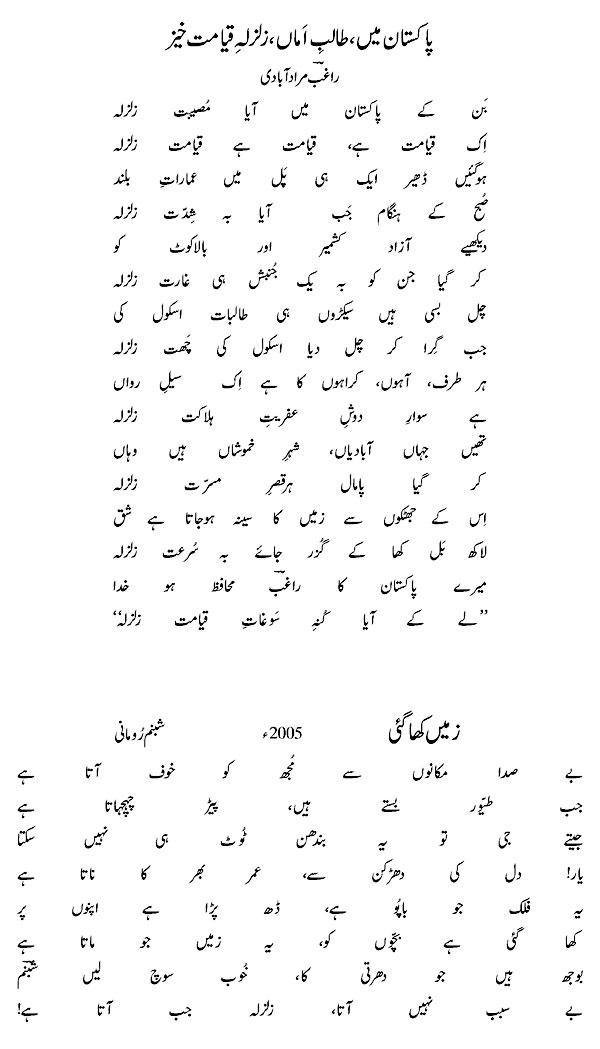 پاکستان میں، طالبِ اَماں، زلزلہِ قیامت خیز
راغبؔ مراد آبادی
بَن کے پاکستان میں آیا مُصیبت زلزلہ
اِک قیامت ہے، قیامت ہے قیامت زلزلہ
ہوگئیں ڈھیر ایک ہی پَل میں عماراتِ بلند
صُبح کے ہنگام جَب آیا بہ شِدّت زلزلہ
دیکھیے آزاد کشمیر اور بالاکوٹ کو
کر گیا جن کو بہ یک جُنبش ہی غارت زلزلہ
چل بسی ہیں سیکڑوں ہی طالبات اسکول کی
جب گِرا کر چل دیا اسکول کی چَھت زلزلہ
ہر طرف، آہوں، کراہوں کا ہے اِک سیلِ رواں
ہے سوارِ دوشِ عفریتِ ہلاکت زلزلہ
تھیں جہاں آبادیاں، شہرِ خموشاں ہیں وہاں
کر گیا پامال ہرقصرِ مسرّت زلزلہ
اِس کے جھٹکوں سے زمیں کا سینہ ہوجاتا ہے شق
لاکھ بَل کھا کے گُزر جائے بہ سُرعت زلزلہ
میرے پاکستان کا راغبؔ محافظ ہو خدا
”لے کے آیا کُنہِ سَوغاتِ قیامت زلزلہ“
زمیں کھا گئی
2005ء
شبنم رُومانی
بے صدا مکانوں سے مُجھ کو خوف آتا ہے
جب طیّور بستے ہیں، پیڑ چہچہاتا ہے
جیتے جی تو یہ بندھن ٹُوٹ ہی نہیں سکتا
یار! دل کی دھڑکن سے، عمر بھر کا ناتا ہے
یہ فلک جو باپُو ہے، ڈھ پڑا ہے اپنوں پر
کھا گئی ہے بچّوں کو، یہ زمیں جو ماتا ہے
بوجھ ہیں جو دھرتی کا، خُوب سوچ لیں شبنمؔ
بے سبب نہیں آتا، زلزلہ جب آتا ہے!